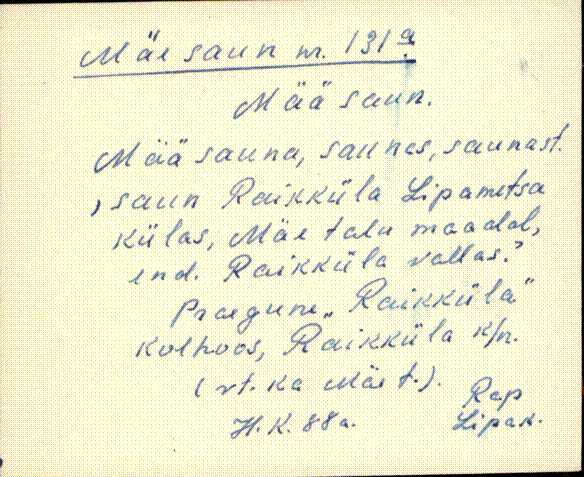 Mäe saun nr. 131a
Mää saun.
Mää sauna, saunas, saunast.
, saun Raikküla Lipametsa
külas, Mäe talu maadel,
end. Raikküla vallas.'
Praegune „Raikküla"
kolhoos, Raikküla k/n.
(vt. ka Mäe t.).
Rap
H. K. 88a. Lipak.